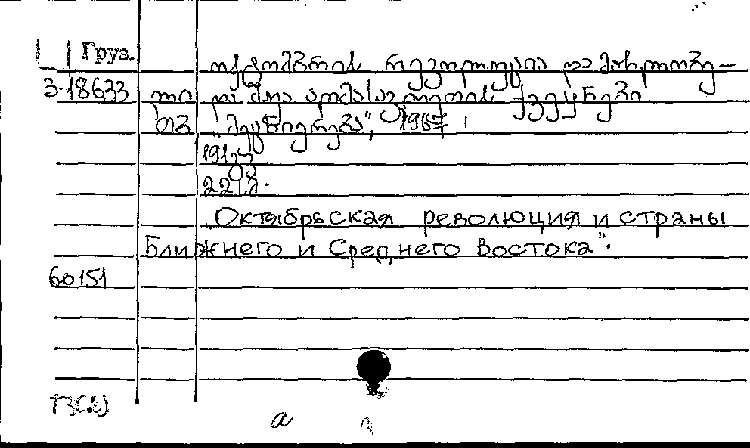 Груз.
ოქტომბრის რევოლუცია და მახლობე-
3-18633 ლი და შუა აღმოსავლეთის ქვეყნები
თბ. "მეცნიერება", 1967.
191 გვ
22 სმ.
Октябрьская революция и страны
Ближнего и Среднего Востока".
60151
ГЗ(2)
а